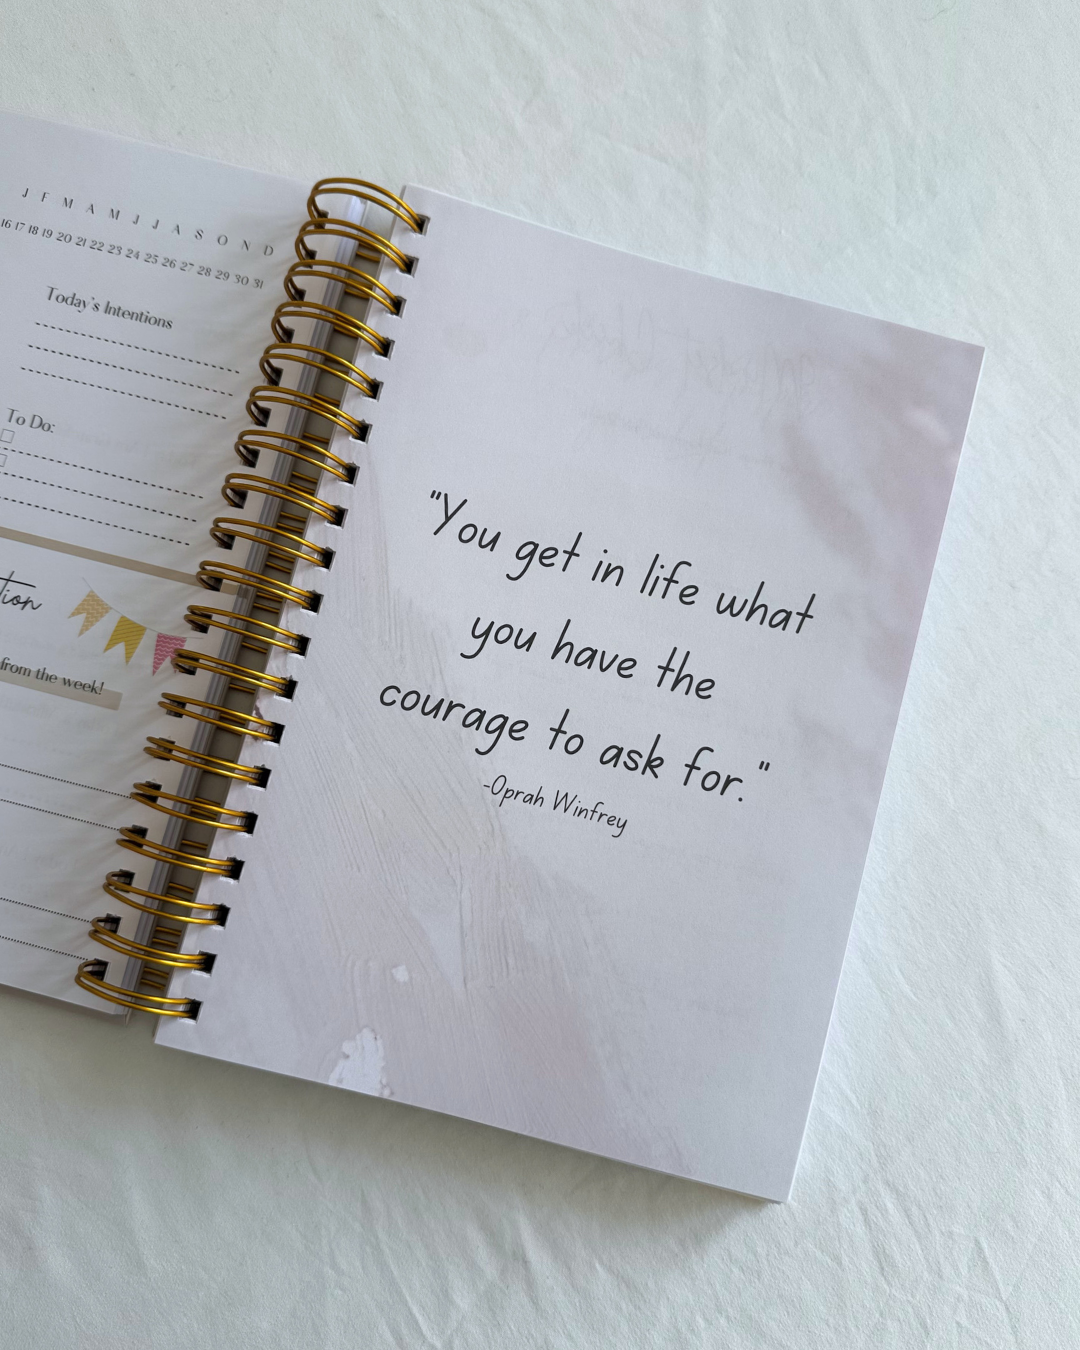 J F M A M J J A S O N D
16 17 18 19 20 21 22 23 24 25 26 27 28 29 30 31
Today's Intentions
To Do:
from the week!
"You get in life what
you have the
courage to ask for."
-Oprah Winfrey